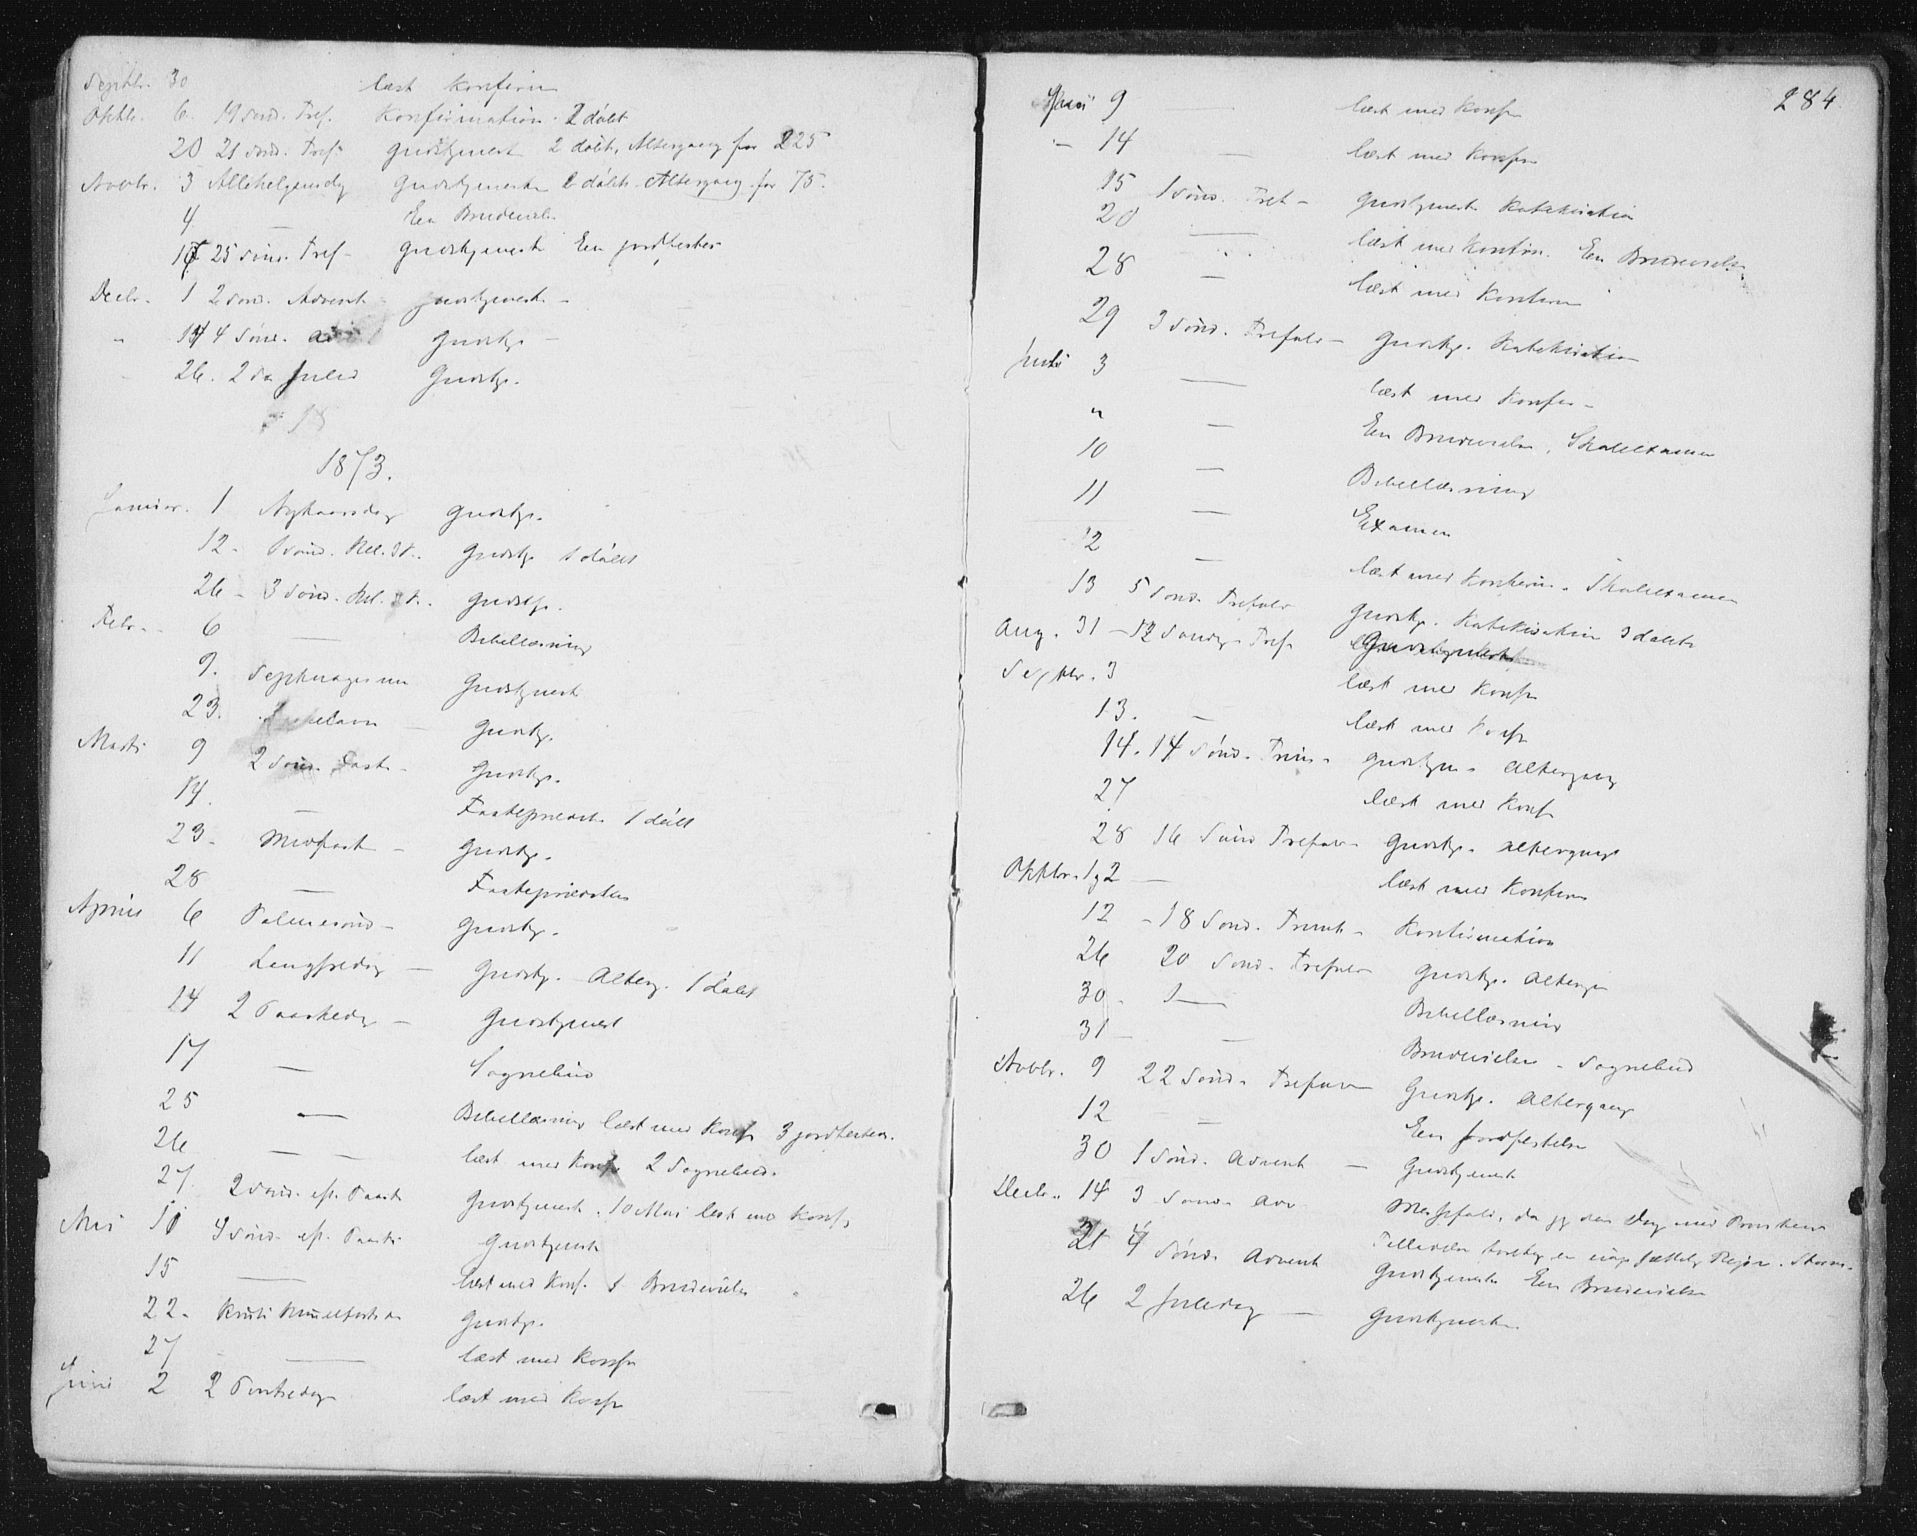 Septbr. 30 læst konfirm
Oktbr. 6. 19 Sønd. Tref. Konfirmation. 2 døbt
20 21 Sønd. Tref. Gudstjeneste 2 døbt, Altergang for 225
Novbr. 3 Allehelgensdg Gudstjeneste 2 døbt Altergang for 75.
4. — En Brudevielse
17 25 Sønd. Tref - Gudstjeneste En jordfestes
Decbr. 1 2 Sønd. Advent Gudstjeneste -
" 14 4 Sønd. Gudstje -
26. 2 Julid Gudstje.
1873.
Januar. 1 Nytaarsdag Gudstje.
12 - 1 Sønd. Hel. 3 K. Gudstje 1 døbt
26 - 3 Sønd. Hel. 3 K. Gudstje.
Febr. - 6 — Bibellæsning
9. Septuagesima Gudstjenest
23. Gudstje.
Marts 9 2 Sønd. Faste - Gudstje.
14. — Fasteprædik 1 døbt
23 - Midfaste - Gudstje.
28 — Fasteprædiken
April 6 Palmesønd - Gudstje.
11 Langfredag — Gudstje. Alterg. 1 døbt
14 2 Paaskedag — Gudstjenest
17 — Sognebud
25 — Bibellæsning læst med Konf 3 jordfestes.
26 — læst med Konf 2 Sognebud.
27 2 Sønd. eft. Paaske Gudstjenest. 10 Mai læst med Konf.
Mai 11 4 Sønd. eft. Paaske Gudstjeneste
15 — læst med Konf. 1 Brudevielse
22 - Kristi Himmelfartsda Gudstje.
27 — læst med Konf
Juni 2 2 Pintsedag læst med Konf
284.
Juni 9 — læst med Konf
" 14 — læst med Konf
15 1 Sønd. Tref - Gudstjeneste Katekisation
20 — læst med Konfirm. En Brudevielse
28 — læst med Konfirm
29 3 Sønd. Trefold - Gudstje. Katekisation
Juli 3 — læst med Konfir -
" — En Brudevielse, Skoleexamen
10 — Bibellæsning
11 — Examen
12 — læst med Konfirm. Skoleexamen
13 5 Sønd. Trefold Gudstje. Katekisation 3 døbte
Aug. 31 - 12 Søndg. Tref Gudstjeneste
Septbr. 3 læst med Konf
13. — læst med Konf
14. 14 Sønd. Trin - Gudstjen - Altergang
27 læst med Konf
28 16 Sønd Trefold - Gudstje. Altergang
Oktbr. 1, 2 — læst med Konfirm
12 - 18 Sønd. Trinit - Konfirmation
26 20 Sønd. Trefold Gudstje. Alterga
30 - — Bibellæsning
31 — Brudevielse - Sognebud
Novbr. 9 22 Sønd. Trefold Gudstje. Altergang
12 — En Jordfestelse
30 1 Sønd. Advent — Gudstjeneste
Decbr. 14 3 Sønd. Adv Messefald, da jeg den Dag med Provstens
Tilladelse foretog en Rejse. Storm.
21 4 Sønd. Advent Gudstjeneste En Brudevielse
26 2 Juledag — Gudstjeneste